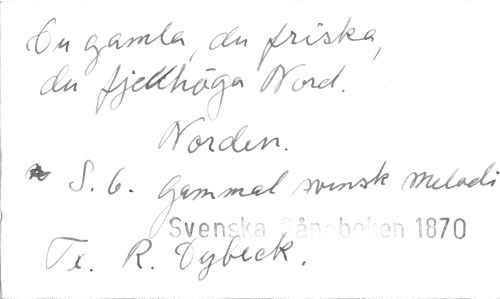 Du gamla, du friska,
du fjellhöga Nord.
Norden.
S. 6. Gammal svensk melodi
Svenska Sångboken 1870
Tx. R. Dybeck.